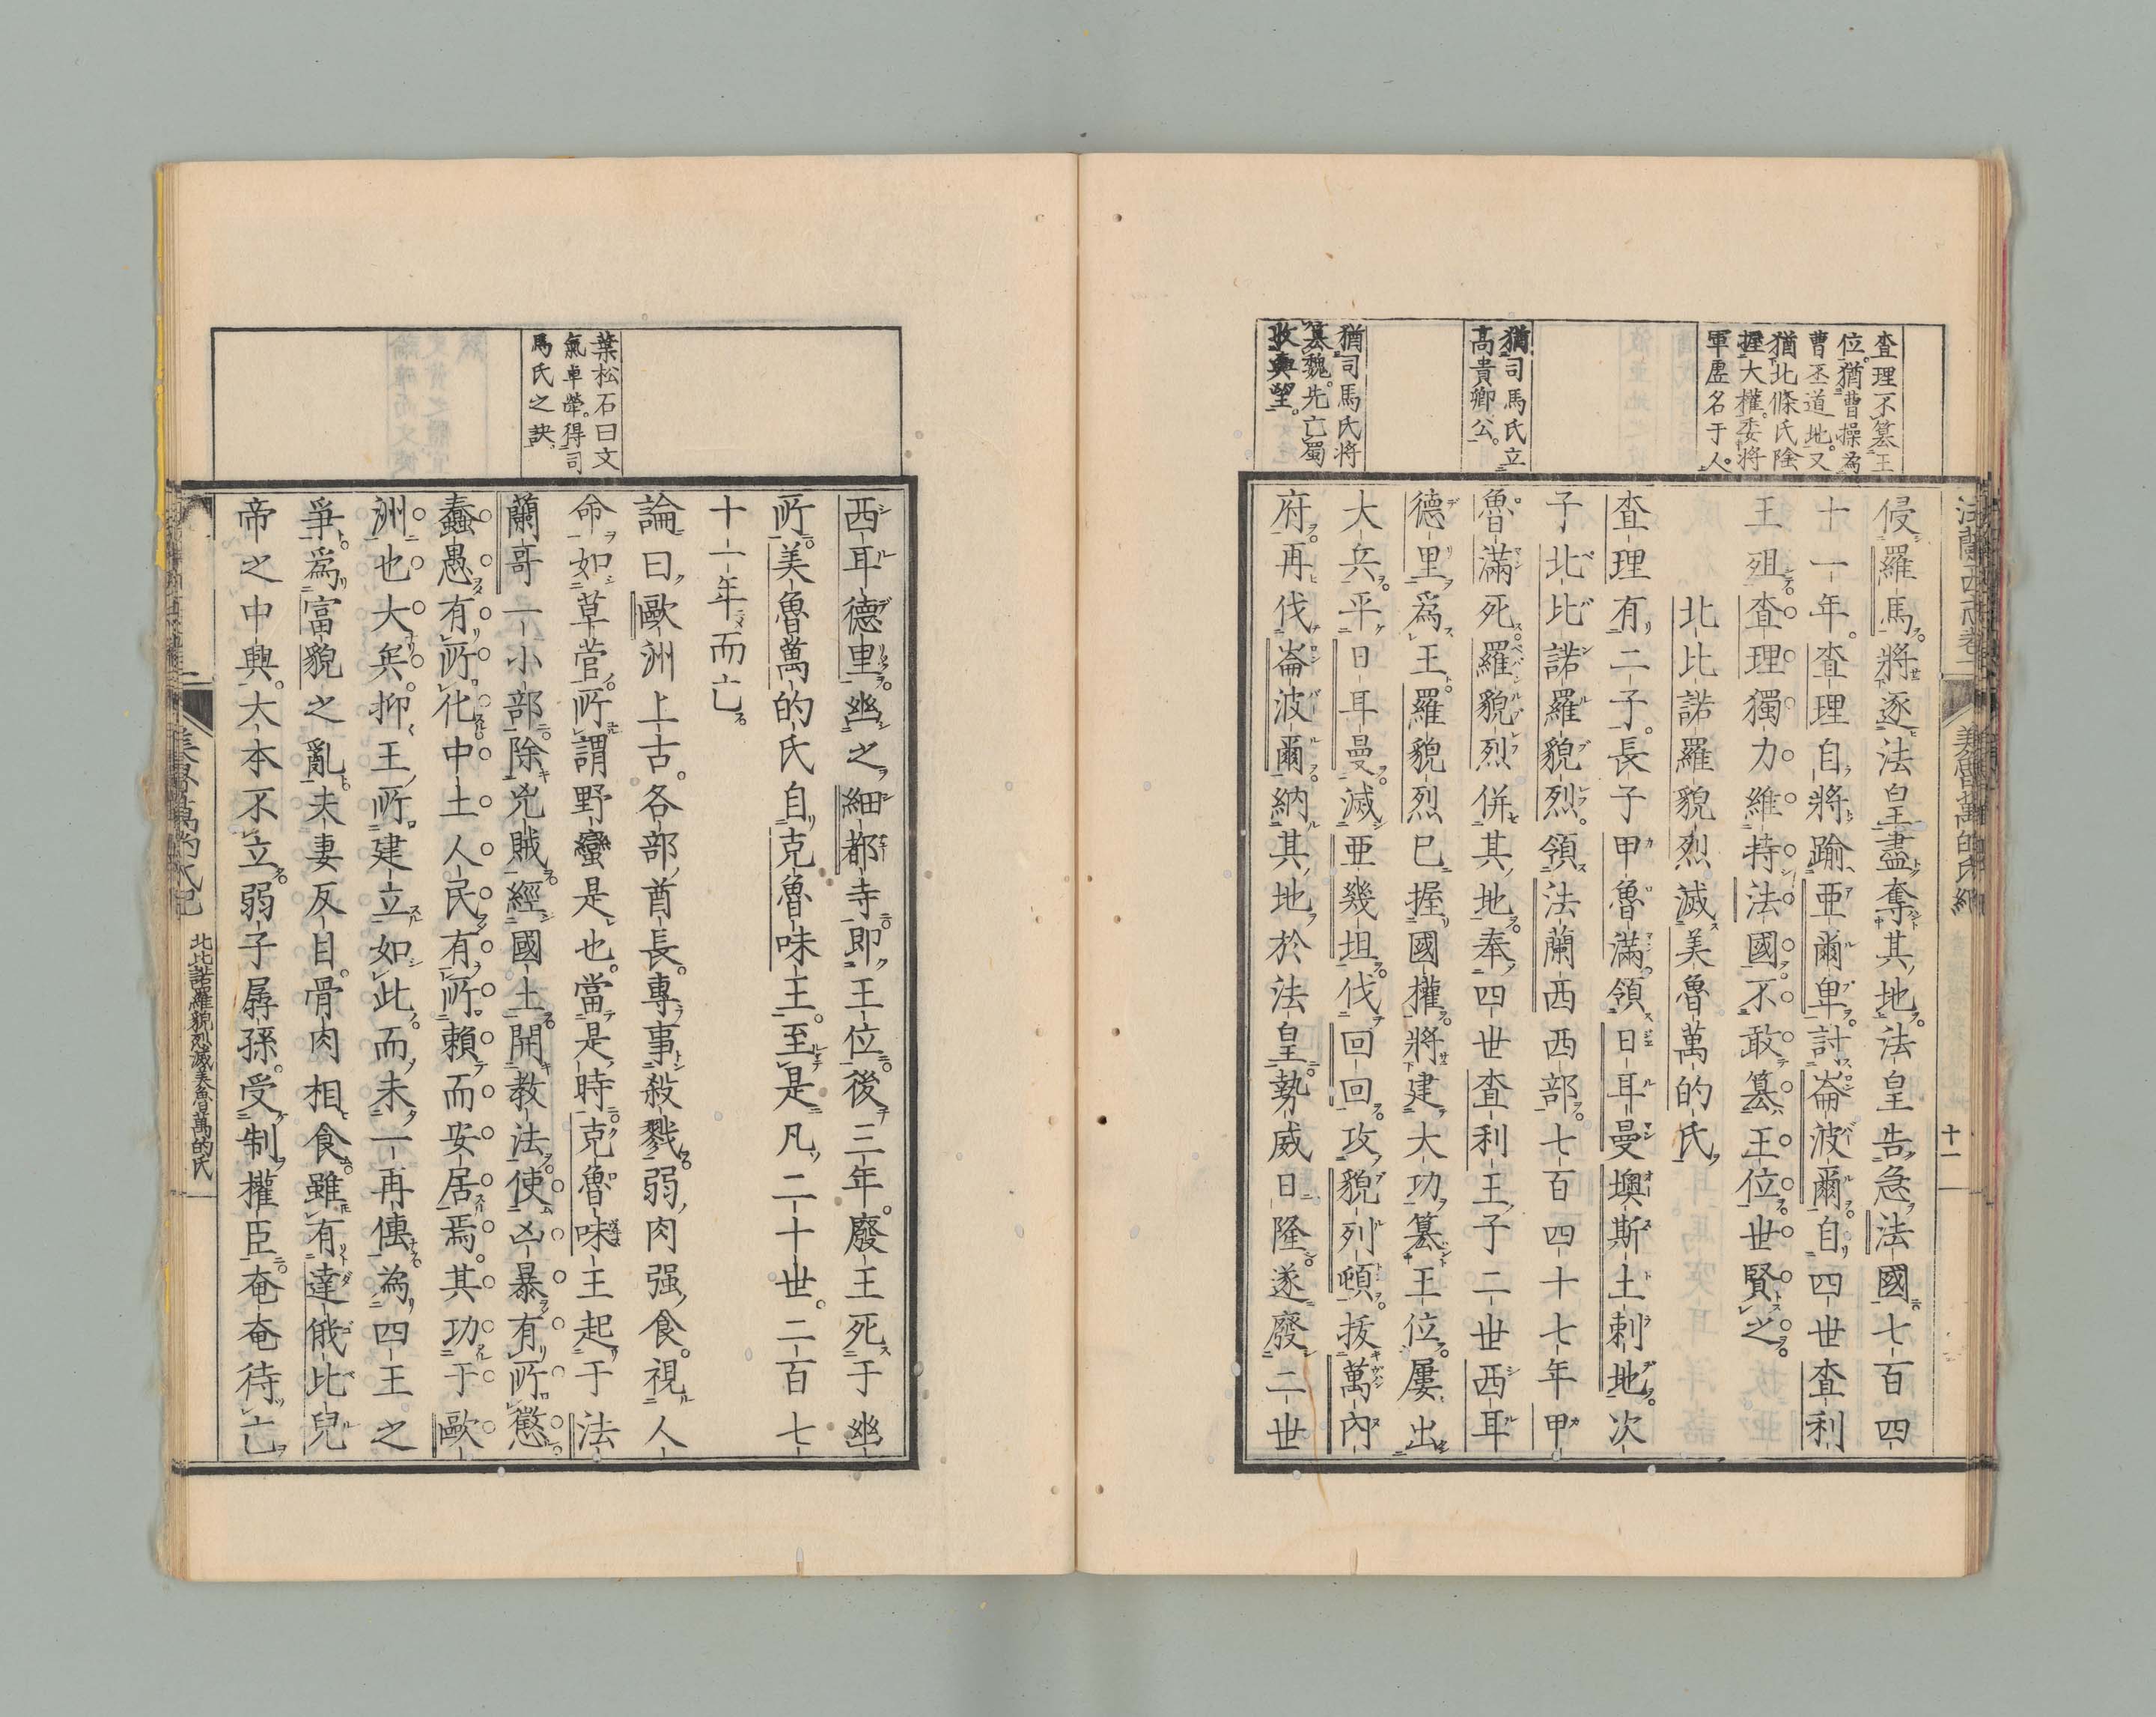 査理不簒王
位。猶曹操為
曹丕道地。又
猶北條氏陰
握大權。委將
軍虛名于人。
猶司馬氏立
高貴鄉公。
猶司馬氏將
簒魏。先亡蜀
收輿望。
美魯萬的氏紀
十一
侵羅馬。將逐法皇盡奪其地。法皇告急法國七百四
十一年。査理自將踰亞爾卑。討崙波爾。自四世査利
王殂。査理獨力維持法國。不敢簒王位。世賢之。
北比諾羅貌烈滅美魯萬的氏
査理有二子。長子甲魯滿。領日耳曼墺斯土剌地。次
子北比諾羅貌烈。領法蘭西西部。七百四十七年甲
魯滿死。羅貌烈併其地。奉四世査利王子二世西耳
德里為王。羅貌烈已握國權。將建大功簒王位。屢出
大兵。平日耳曼。滅亜幾坦。伐回回。攻貌列頓。拔萬內
府。再伐崙波爾。納其地於法皇。勢威日隆。遂廢二世
葉松石曰文
氣卓犖。得司
馬氏之訣。
西耳德里。幽之細都寺。即王位。後三年。廢王死于幽
所。美魯萬的氏自克魯味王。至是凡二十世。二百七
十一年而亡。
論曰。歐洲上古。各部酋長。專事殺戮。弱肉强食。視人
命如草菅。所謂野蠻是也。當是時。克魯味王起于法
蘭哥一小部。除兇賊。經國土。開教法。使凶暴有所懲。
蠢愚有所化。中土人民有所賴而安居焉。其功于歐
洲也大矣。抑王所建立如此。而未一再傳。為四王之
爭。為富貌之亂。夫妻反目。骨肉相食。雖有達俄比兒
帝之中興。大本不立。弱子孱孫。受制權臣。奄奄待亡
北比諾羅貌烈滅美魯萬的氏